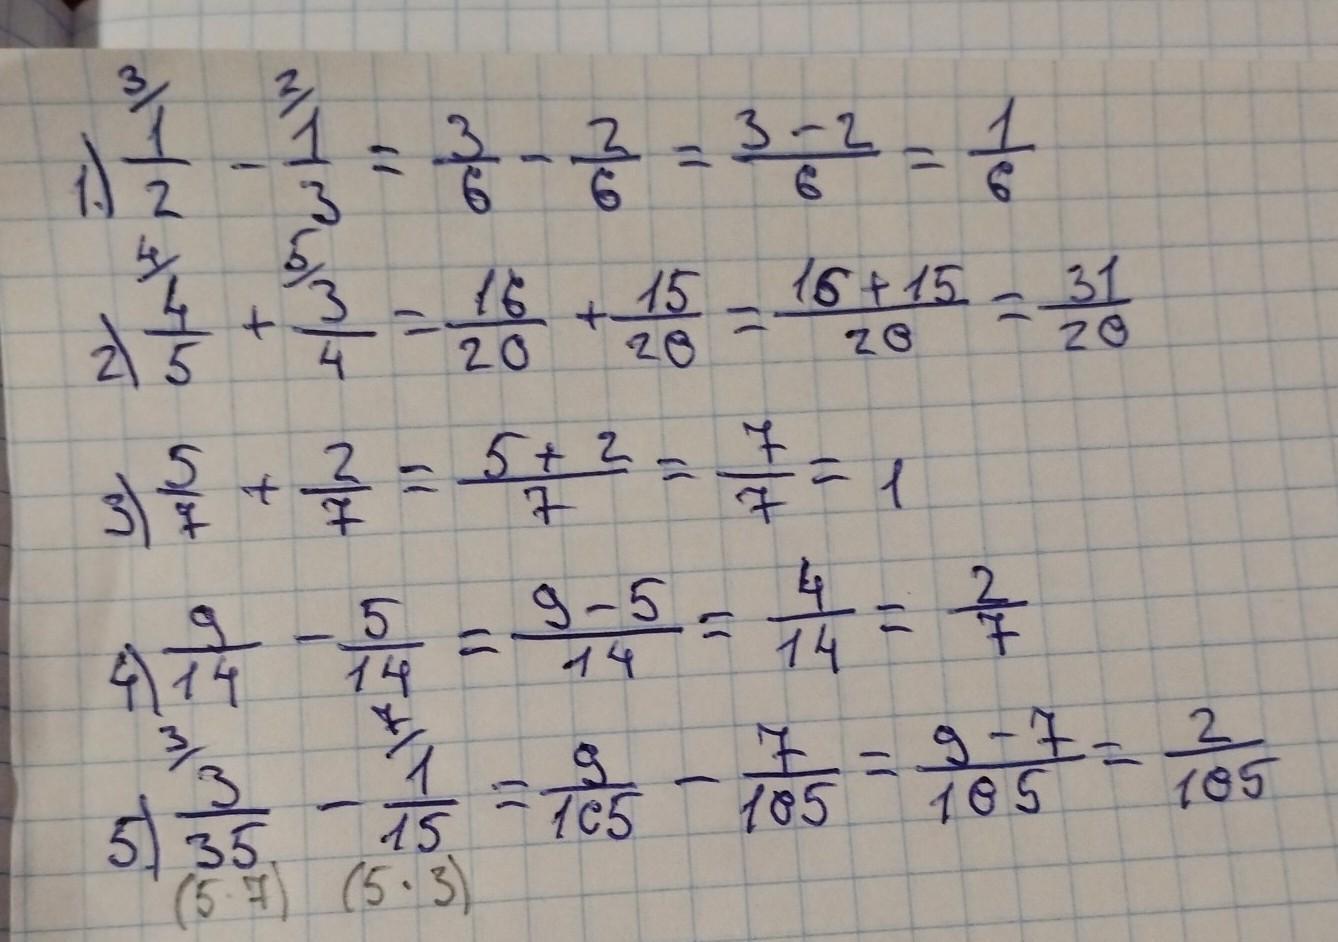 1.) 3/ 1/2 - 2/ 1/3 = 3/6 - 2/6 = (3-2)/6 = 1/6
2) 4/ 4/5 + 5/ 3/4 = 16/20 + 15/20 = (16+15)/20 = 31/20
3) 5/7 + 2/7 = (5+2)/7 = 7/7 = 1
4) 9/14 - 5/14 = (9-5)/14 = 4/14 = 2/7
5.) 3/ 3/35 - 7/ 1/15 = 9/105 - 7/105 = (9-7)/105 = 2/105
(5·7) (5·3)